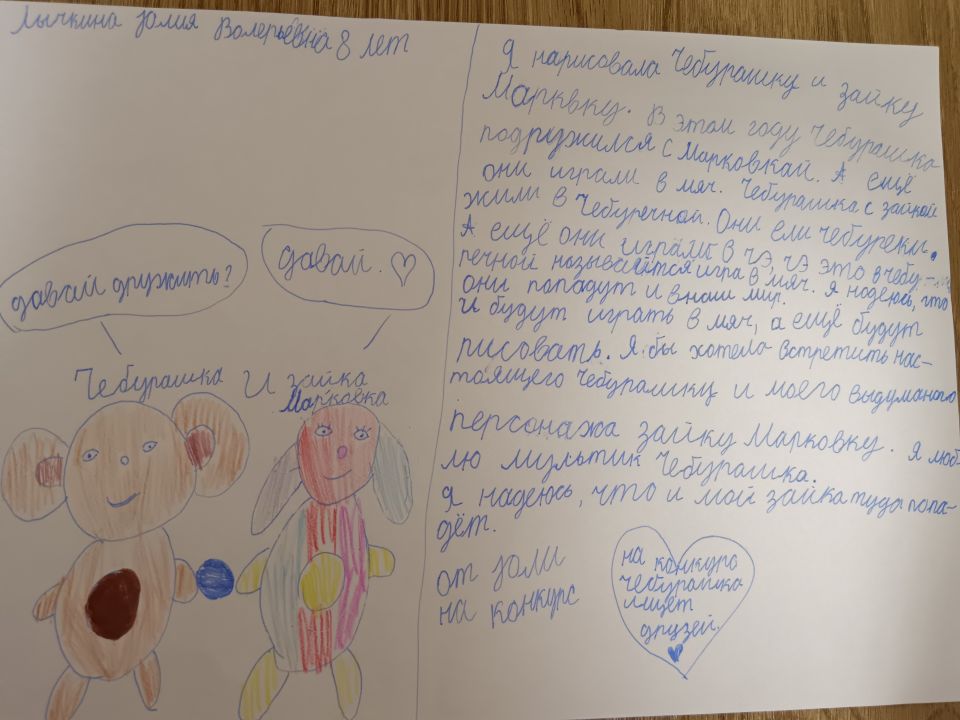 Лычкина Юлия Валерьевна 8 лет
давай дружить?
давай. ♡
Чебурашка и зайка
Марковка
Я нарисовала Чебурашку и зайку
Марквку. В этом году Чебурашка
подружился с Марковкай. А ещё
они играли в мяч. Чебурашка с зайкой
жили в Чебуречной. Они ели чебуреки.
А ещё они играли в чэ чэ это в чебу-
речной называется игра в мяч. Я надеюсь, что
они попадут и в наш мир.
И будут играть в мяч, а ещё будут
рисовать. Я бы хотела встретить нас-
тоящего Чебурашку и моего выдуманого
персонажа зайку Марковку. Я люб-
лю мультик Чебурашка.
Я надеюсь, что и мой зайка туда попа-
дёт.
от Юли
на конкурс
на конкурс
чебурашка
ищет
друзей.